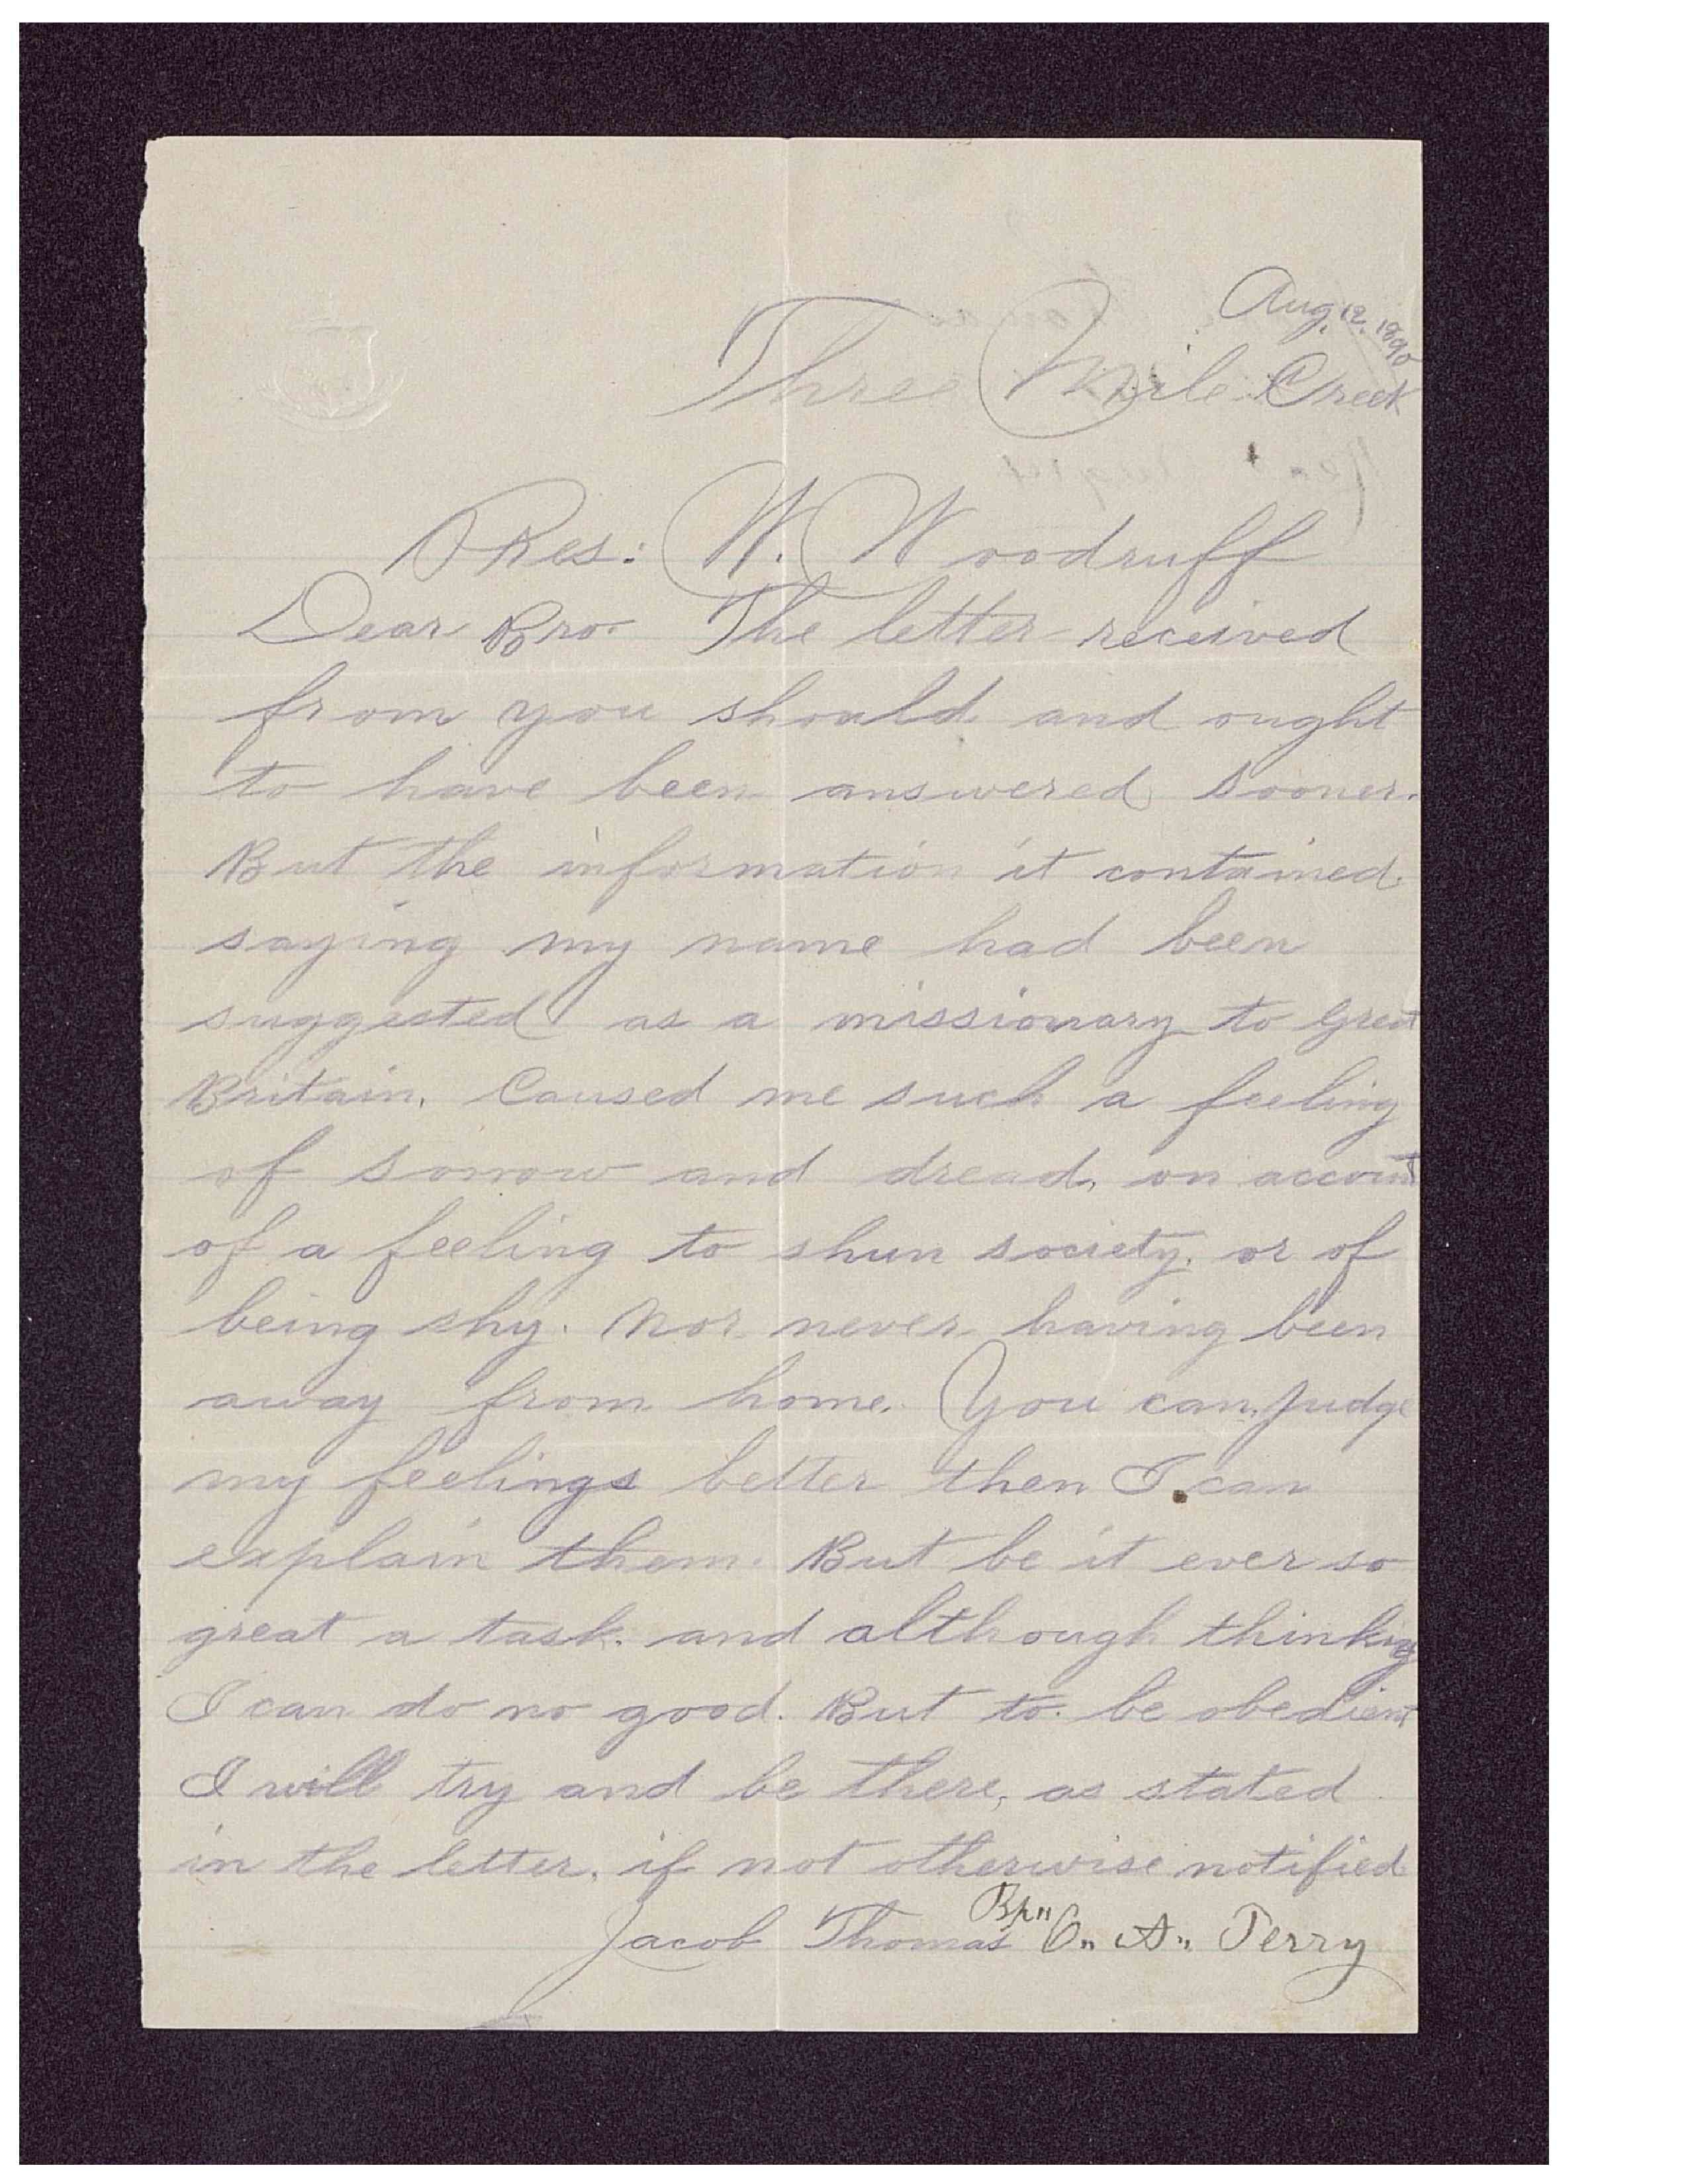 Aug. 12. 1890
Three Mile Creek
Pres: W. Woodruff
Dear Bro. The letter received
from you should and ought
to have been answered sooner.
But the information it contained.
saying my name had been
suggested as a missionary to Great
Britain. Caused me such a feeling
of sorrow and dread, on account
of a feeling to shun society. or of
being shy. Nor never having been
away from home. You can judge
my feelings better then I can
explain them. But be it ever so
great a task. and although thinking
I can do no good. But to be obedient
I will try and be there, as stated
in the letter. if not otherwise notified
Jacob Thomas Bp" O" A" Perry